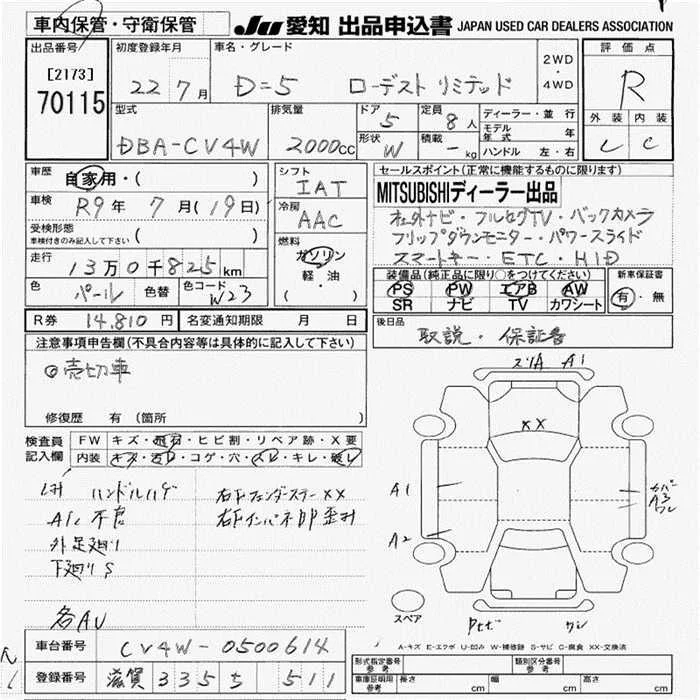 車内保管・守衛保管
JU 愛知 出品申込書 JAPAN USED CAR DEALERS ASSOCIATION
出品番号
[2173]
70115
初度登録年月
22 7月
車名・グレード
D=5 ローデスト リミテッド
2WD
・
4WD
評価点
R
外装 内装
C
型式
DBA-CV4W
排気量
2000cc
ドア
5
形状 W
定員
8人
積載
- kg
ディーラー・並行
モデル年式 年
ハンドル 左・右
車歴
自家用・( )
車検
R9年 7月(19日)
受検形態
車検付きのみ記入して下さい ( )
走行
13万0千825km
色 パール 色替 色コード W23
シフト
IAT
冷房
AAC
燃料
ガソリン
軽・油
( )
セールスポイント(正常に機能するものに限ります)
MITSUBISHIディーラー出品
社外ナビ・フルセグTV・バックカメラ
フリップダウンモニター・パワースライド
スマートキー・ETC・HID
装備品(純正品に限り○をつけてください)
PS PW エアB AW
SR ナビ TV カワシート
新車保証書
有・無
R券 14,810円 名変通知期限 月 日
後日品
取説・保証書
注意事項申告欄(不具合内容等は具体的に記入して下さい)
◎売切車
修復歴 有 (箇所 )
検査員記入欄
FW キズ・飛石・ヒビ割・リペア跡・X要
内装 キズ・汚れ・コゲ・穴・スレ・キレ・破レ
ハンドルハゲ
A/C不良
外足廻り
下廻りS
各AU
右FフェンダーステーXX
右Fインパネ部歪み
A1
XX
A1
A2
A3
スペア
A-キズ E-エクボ U-凹み W-補修跡 S-サビ C-腐食 XX-交換済
車台番号 CV4W-0500614
登録番号 滋賀 335 ち 511
形式指定番号 参考
類別区分番号 参考
車庫証明用 参考 長さ cm 幅 cm 高さ cm